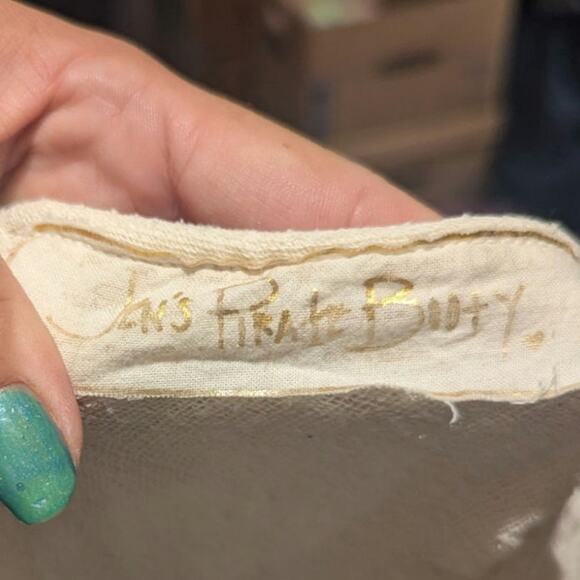 Jen's Pirate Booty.